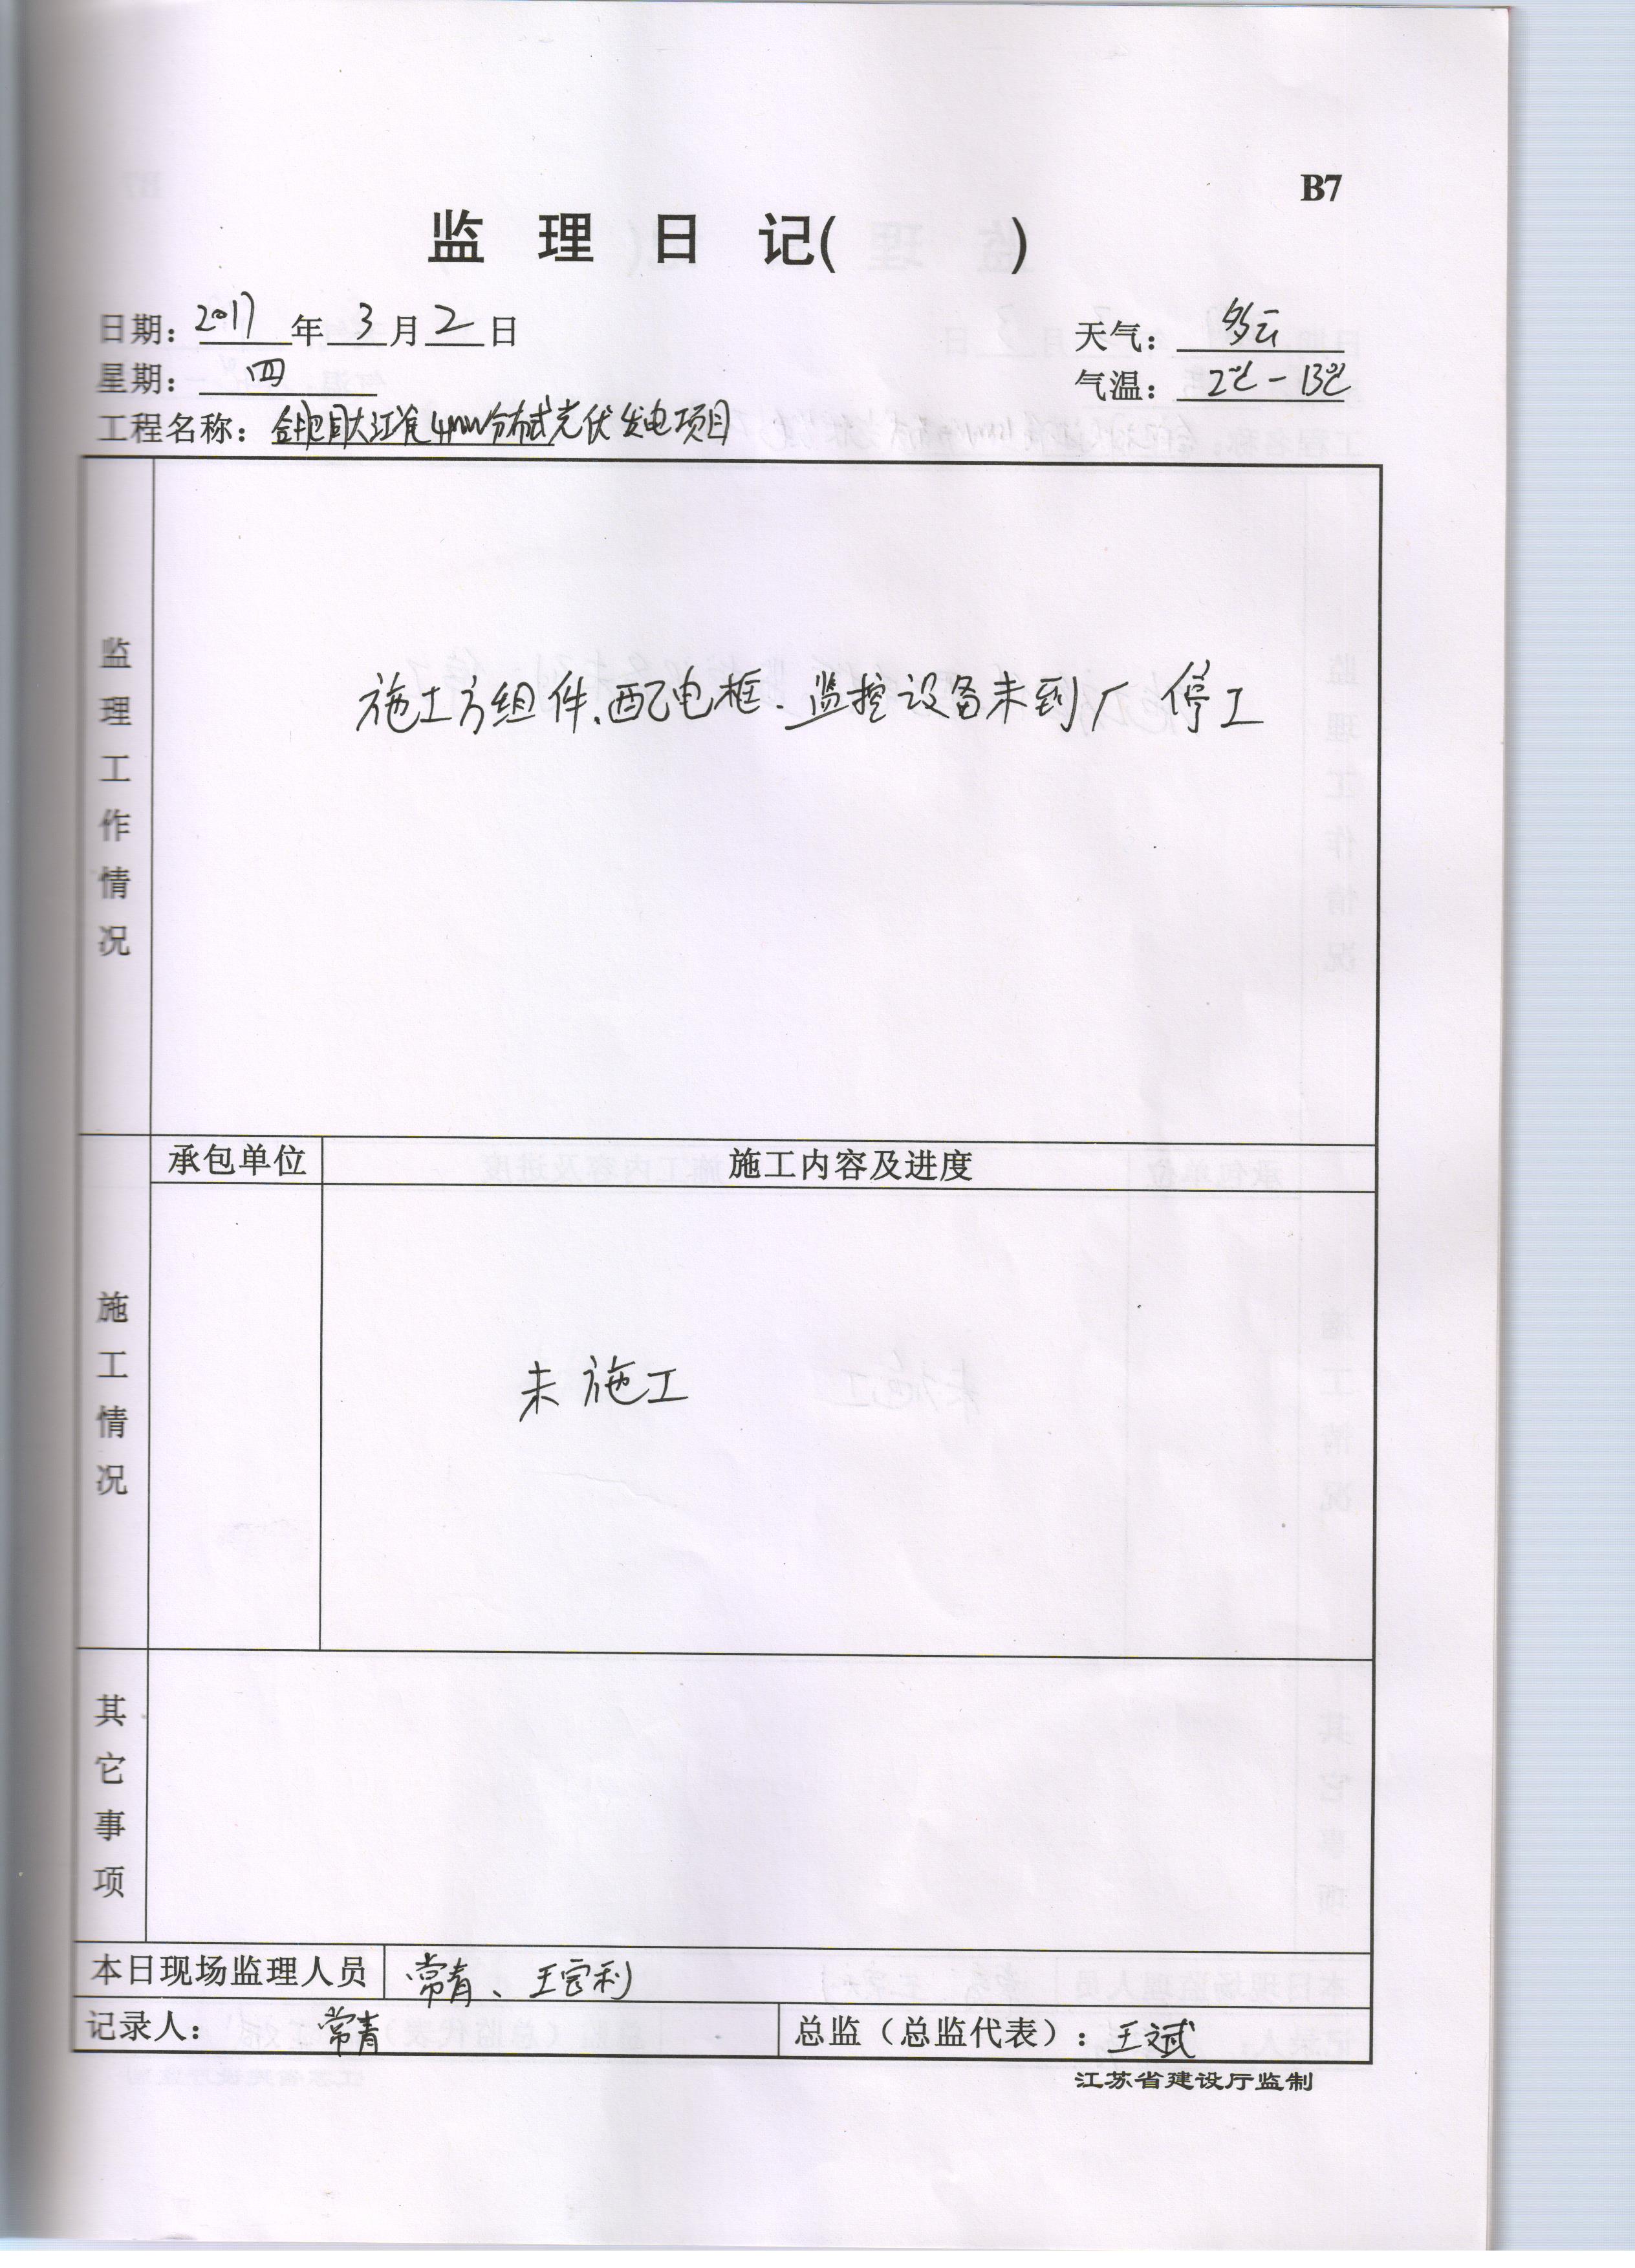 B7
监理日记(　　)
日期：2017年3月2日
天气：多云
星期：四
气温：2℃-13℃
工程名称：大江淮4MW分布式光伏发电项目
监理工作情况
施工方组件、配电框、监控设备未到厂 停工
承包单位 施工内容及进度
施工情况
未施工
其它事项
本日现场监理人员 常青、王宝利
记录人：常青 总监（总监代表）：王斌
江苏省建设厅监制